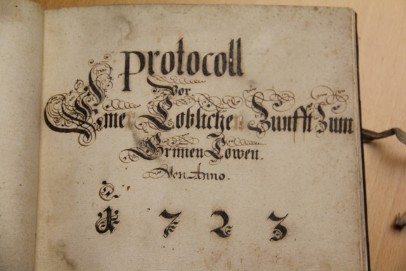 Protocoll
Vor
Eine Loblicke Zunfft Zum
Grünen Löwen.
Von Anno.
1 7 2 3